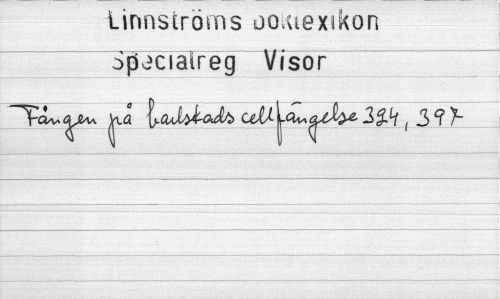 Linnströms boklexikon
Specialreg Visor
Fången på Carlstads cellfängelse 394, 397